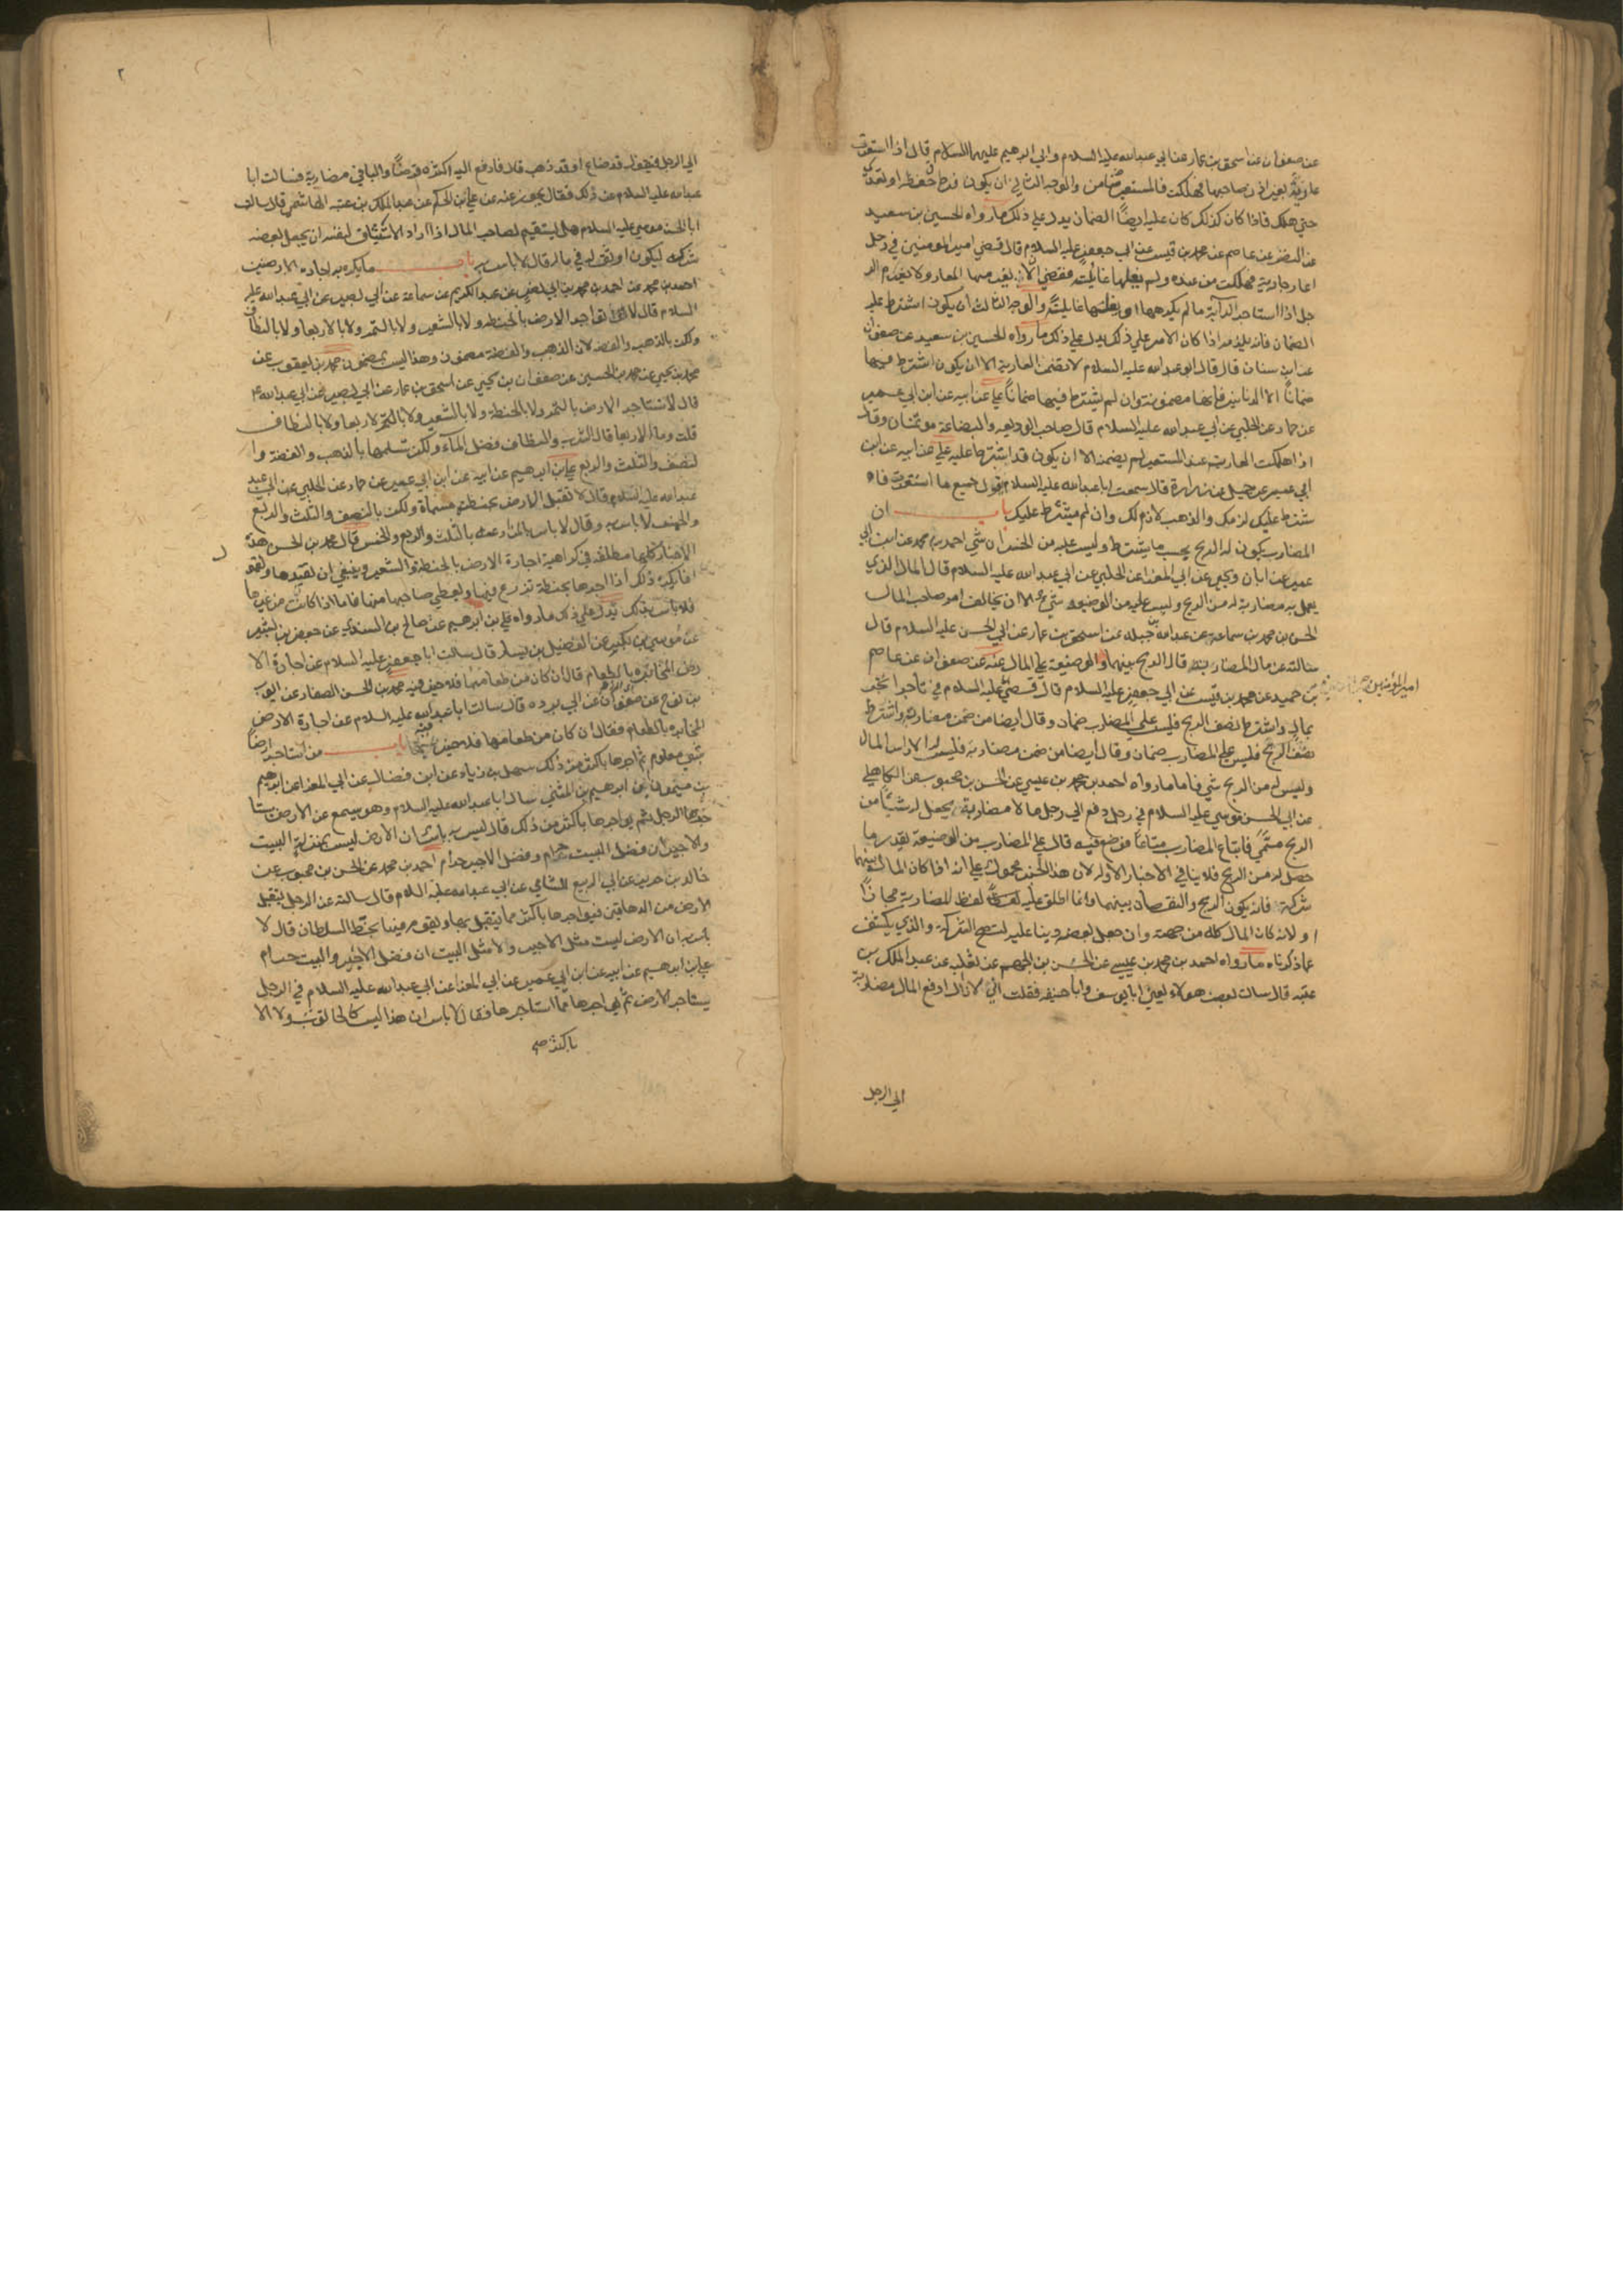 عن صفوان عن اسحق بن عمار عن ابي عبدالله عليه السلام وابي ابرهيم عليهما السلام قال اذا استعرت
عارية بغير اذن صاحبها فهلكت فالمستعير ضامن والوجه الثاني ان يكون فرط في حفظه او تعدى
حتي هلك فاذا كان كذلك كان عليه ايضًا الضمان يدل علي ذلك ما رواه الحسين بن سعيد
عن النضر عن عاصم عن محمد بن قيس عن ابي جعفر عليه السلام قال قضي امير المومنين في رجل
اعار جارية فهلكت من عنده ولم يبغها غايلة فقضي الا يغرمها المعار ولا يغرم الر
جل اذا استاجر الدابة ما لم يكرهها او يبغها غايلة والوجه الثالث ان يكون اشترط عليه
الضمان فانه يلزمه اذا كان الامر علي ذلك يدل علي ذلك ما رواه الحسين بن سعيد عن صفوان
عن ابن سنان قال قال ابو عبدالله عليه السلام لا تضمن العارية الا ان يكون اشترط فيها
ضمانًا الا الدنانير فانها مضمونة وان لم يشترط فيها ضمانًا علي عن ابيه عن ابن ابي عمير
عن حماد عن الحلبي عن ابي عبدالله عليه السلام قال صاحب الوديعه والبضاعة موتمنان وقال
اذا هلكت العارية عند المستعير لم يضمنه الا ان يكون قد اشترط عليه علي عن ابيه عن ابن
ابي عمير عن جميل عن زرارة قال سمعت ابا عبدالله عليه السلام يقول جميع ما استعرت فا
شترط عليك لزمك والذهب لازم لك وان لم يشترط عليك باب ان
المضارب يكون له الربح بحسب ما يشترط وليس عليه من الخسران شي احمد بن محمد عن ابن ابي
عمير عن ابان ويحيي عن ابي المغرا عن الحلبي عن ابي عبدالله عليه السلام قال المال الذي
يعمل به مضاربة له من الربح وليس عليه من الوضيعه شي الا ان يخالف امر صاحب المال
الحسن بن محمد بن سماعة عن عبدالله بن جبلة عن اسحق بن عمار عن ابي الحسن عليه السلام قال
سالته عن مال المضاربة قال الربح بينهما والوضيعة علي المال عنه عن صفوان عن عاصم
بن حميد عن محمد بن قيس عن ابي جعفر عليه السلام قال قضي عليه السلام في تاجر اتجر
امير المؤمنين
بمال واشترط نصف الربح فليس علي المضارب ضمان وقال ايضا من ضمن مضاربه واشترط
نصف الربح فليس علي المضارب ضمان وقال ايضا من ضمن مضاربه فليس له الا راس المال
وليس له من الربح شي فاما ما رواه احمد بن محمد بن عيسي عن الحسن بن محبوب عن الكاهلي
عن ابي الحسن موسي عليه السلام في رجل دفع الي رجل مالا مضاربة يجعل له شيئًا من
الربح مسمًي فابتاع المضارب متاعًا فوضع فيه قال علي المضارب من الوضيعة بقدر ما
حصل له من الربح فلا ينافي الاخبار الاوله لان هذا الخبر محمول علي انه اذا كان المال بينهما
شركة فانه يكون الربح والنقصان بينهما وانما اطلق عليه لفظ المضاربة مجازًا
او لانه كان المال كله من جهته وان جعل بعضه دينا عليه لتصح الشركة والذي يكشف
عما ذكرناه ما رواه احمد بن محمد بن عيسي عن الحسن بن الجهم عن ثعلبه عن عبدالملك بن
عتبه قال سالت بعض هولاء يعني ابا يوسف وابا حنيفه فقلت اني لا ازال ادفع المال مضاربة
الي الرجل
٢
الي الرجل فيقول قد ضاع او قد ذهب قال فادفع اليه اكثره قرضًا والباقي مضاربة فسالت ابا
عبدالله عليه السلام عن ذلك فقال يجوز عنه عن علي بن الحكم عن عبدالملك بن عتبه الهاشمي قال سالت
ابا الحسن موسي عليه السلام هل يستقيم لصاحب المال اذا اراد الاستيثاق لنفسه ان يجعل بعضه
شركه ليكون اوثق له في ماله قال لا باس به باب ما يكره به اجارة الارضين
احمد بن محمد عن احمد بن محمد بن ابي نصر عن عبدالكريم عن سماعة عن ابي بصير عن ابي عبدالله عليه
السلام قال لا تواجر الارض بالحنطه ولا بالشعير ولا بالتمر ولا بالاربعا ولا بالنطاف
ولكن بالذهب والفضه لان الذهب والفضة مضمون وهذا ليس بمضمون محمد بن يعقوب عن
محمد بن يحيي عن محمد بن الحسين عن صفوان بن يحيي عن اسحق بن عمار عن ابي بصير عن ابي عبدالله ع
قال لا تستاجر الارض بالتمر ولا بالحنطة ولا بالشعير ولا بالاربعا ولا بالنطاف
قلت وما الاربعا قال الشرب والنطاف فضل المآء ولكن تسلمها بالذهب والفضة وا
لنصف والثلث والربع علي بن ابرهيم عن ابيه عن ابن ابي عمير عن حماد عن الحلبي عن ابي
عبدالله عليه السلام قال لا تقبل الارض بحنطة مسماة ولكن بالنصف والثلث والربع
والخمس لا باس به وقال لا باس بالمزارعة بالثلث والربع والخمس قال محمد بن الحسن هذه
الاخبار كلها مطلقه في كراهية اجارة الارض بالحنطة والشعير وينبغي ان نقيدها ونقول
انما يكره ذلك اذا اجرها بحنطة تزرع فيها ويعطي صاحبها منها فاما اذا كانت من غيرها
فلا باس بذلك يدل علي ذلك ما رواه علي بن ابرهيم عن صالح بن السندي عن جعفر بن بشير
عن موسي بن بكير عن الفضيل بن يسار قال سالت ابا جعفر عليه السلام عن اجارة الا
رض المخابره بالطعام قال ان كان من طعامها فلا خير فيه محمد بن الحسن الصفار عن ايوب
بن نوح عن صفوان عن ابي برده قال سالت ابا عبدالله عليه السلام عن اجارة الارض
المخابره بالطعام فقال ان كان من طعامها فلا خير فيه باب من استاجر ارضًا
بشي معلوم ثم اجرها باكثر من ذلك سهل بن زياد عن ابن فضال عن ابي المغرا عن ابرهيم
بن ميمون ان ابرهيم بن المثني سال ابا عبدالله عليه السلام وهو يسمع عن الارض يستا
جرها الرجل ثم يواجرها باكثر من ذلك قال ليس به باس ان الارض ليست بمنزلة البيت
والاجير ان فضل البيت حرام وفضل الاجير حرام احمد بن محمد عن الحسن بن محبوب عن
خالد بن جرير عن ابي الربيع الشامي عن ابي عبدالله عليه السلام قال سالته عن الرجل يتقبل
الارض من الدهاقين فيواجرها باكثر مما يتقبل بها ويقوم فيها بحظ السلطان قال لا
باس به ان الارض ليست مثل الاجير ولا مثل البيت ان فضل الاجير والبيت حرام
علي بن ابرهيم عن ابيه عن ابن ابي عمير عن ابي المغرا عن ابي عبدالله عليه السلام في الرجل
يستاجر الارض ثم يواجرها مما استاجرها فقال لا باس ان هذا ليس كالحانوت ولا الا
باكثر صح